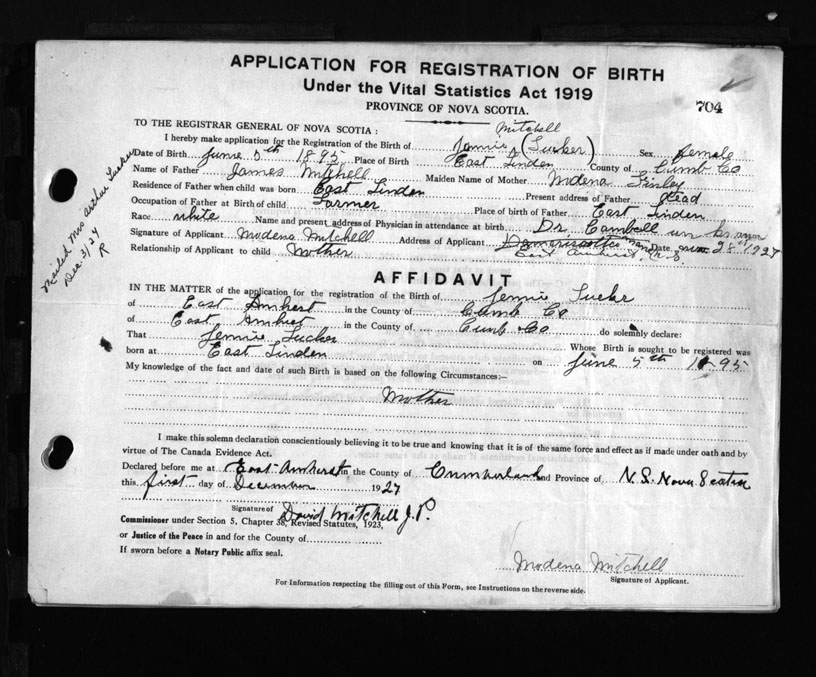 APPLICATION FOR REGISTRATION OF BIRTH
Under the Vital Statistics Act 1919
PROVINCE OF NOVA SCOTIA.
704
TO THE REGISTRAR GENERAL OF NOVA SCOTIA:
Mitchell
I hereby make application for the Registration of the Birth of Jennie (Tucker) Sex female
Date of Birth June 5th 1895 Place of Birth East Linden County of Cumb Co
Name of Father James Mitchell Maiden Name of Mother Modena Finley
Residence of Father when child was born East Linden Present address of Father Dead
Occupation of Father at Birth of child Farmer Place of birth of Father East Linden
Race white Name and present address of Physician in attendance at birth Dr. Cambell
Signature of Applicant Modena Mitchell Address of Applicant Date 28th 1927
Relationship of Applicant to child Mother East Amherst N S
Mailed Mrs Arthur Tucker
Dec 31/27
R
AFFIDAVIT
IN THE MATTER of the application for the registration of the Birth of Jennie Tucker
of East Amherst in the County of Cumb Co
of East Amherst in the County of Cumb Co do solemnly declare:
That Jennie Tucker Whose Birth is sought to be registered was
born at East Linden on June 5th 1895
My knowledge of the fact and date of such Birth is based on the following Circumstances:-
Mother
I make this solemn declaration conscientiously believing it to be true and knowing that it is of the same force and effect as if made under oath and by
virtue of The Canada Evidence Act.
Declared before me at East Amherst in the County of Cumberland and Province of N.S. Nova Scotia
this first day of December 1927
Signature of David Mitchell J.P.
Commissioner under Section 5, Chapter 38, Revised Statutes, 1923,
or Justice of the Peace in and for the County of
If sworn before a Notary Public affix seal.
Modena Mitchell
Signature of Applicant.
For Information respecting the filling out of this Form, see Instructions on the reverse side.